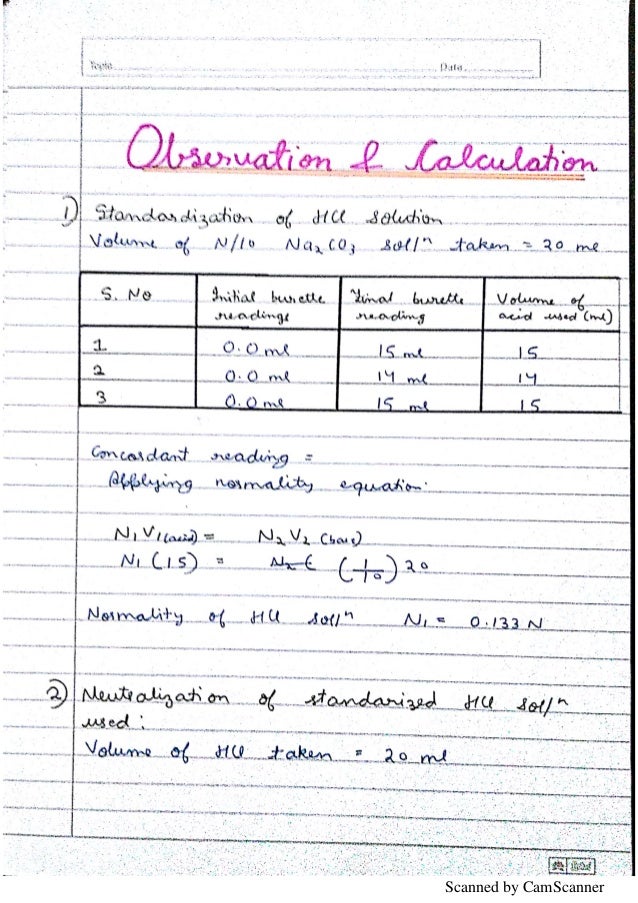 Topic
Date
Observation & Calculation
1) Standardization of HCl solution
Volume of N/10 Na2CO3 soll^n taken = 20 ml
S. No Initial burette readings Final burette reading Volume of acid used (ml)
1 0.0 ml 15 ml 15
2 0.0 ml 14 ml 14
3 0.0 ml 15 ml 15
Concordant reading =
Applying normality equation:
N1V1(acid) = N2V2 (base)
N1 (15) = (1/10) 20
Normality of HCl soll^n N1 = 0.133 N
2) Neutralization of standarized HCl soll^n
used :
Volume of HCl taken = 20 ml
Scanned by CamScanner